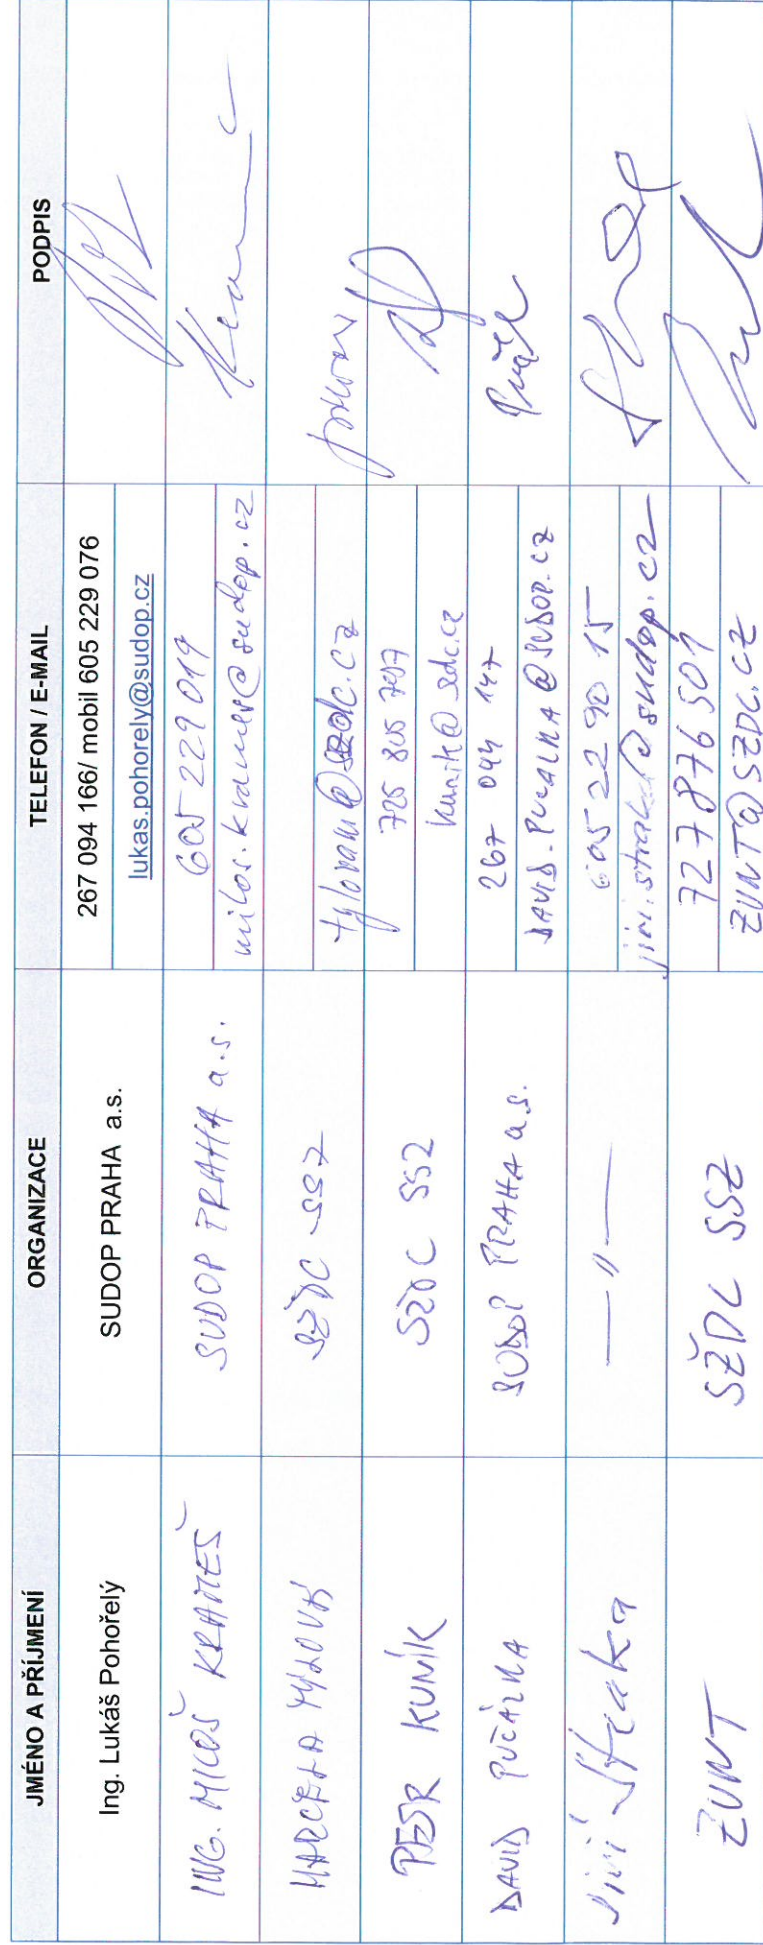 JMÉNO A PŘÍJMENÍ ORGANIZACE TELEFON / E-MAIL PODPIS
Ing. Lukáš Pohořelý SUDOP PRAHA a.s. 267 094 166/ mobil 605 229 076
lukas.pohorely@sudop.cz
ING. MILOŠ KRAMEŠ SUDOP PRAHA a.s. 605 229 019
milos.krames@sudop.cz
MARCELA TYLOVÁ SŽDC SSZ
tylovam@szdc.cz
PETR KUNÍK SŽDC SSZ
kunik@szdc.cz
DAVID PUČÁLKA SUDOP PRAHA a.s. 267 094 147
DAVID.PUCALKA@SUDOP.CZ
Jiří Straka —〃— 605 22 90 15
jiri.straka@sudop.cz
ZUNT SŽDC SSZ 727876501
ZUNT@SZDC.CZ